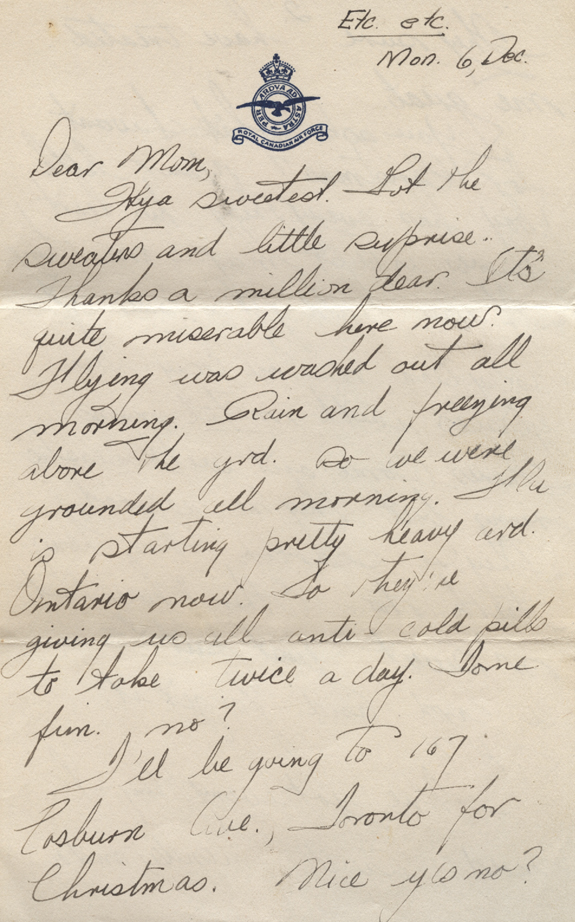 Etc. etc.
Mon. 6, Dec.
PER ARDVA AD ASTRA
ROYAL CANADIAN AIR FORCE
Dear Mom,
Hya sweetest. Got the
sweaters and little surprise.
Thanks a million dear. It's
quite miserable here now.
Flying was washed out all
morning. Rain and freezing
above the grd. so we were
grounded all morning. Flu
is starting pretty heavy ard.
Ontario now. So they're
giving us all anti-cold pills
to take twice a day. Some
fun. no?
I'll be going to 167
Cosburn Ave., Toronto for
Christmas. Nice yes no?